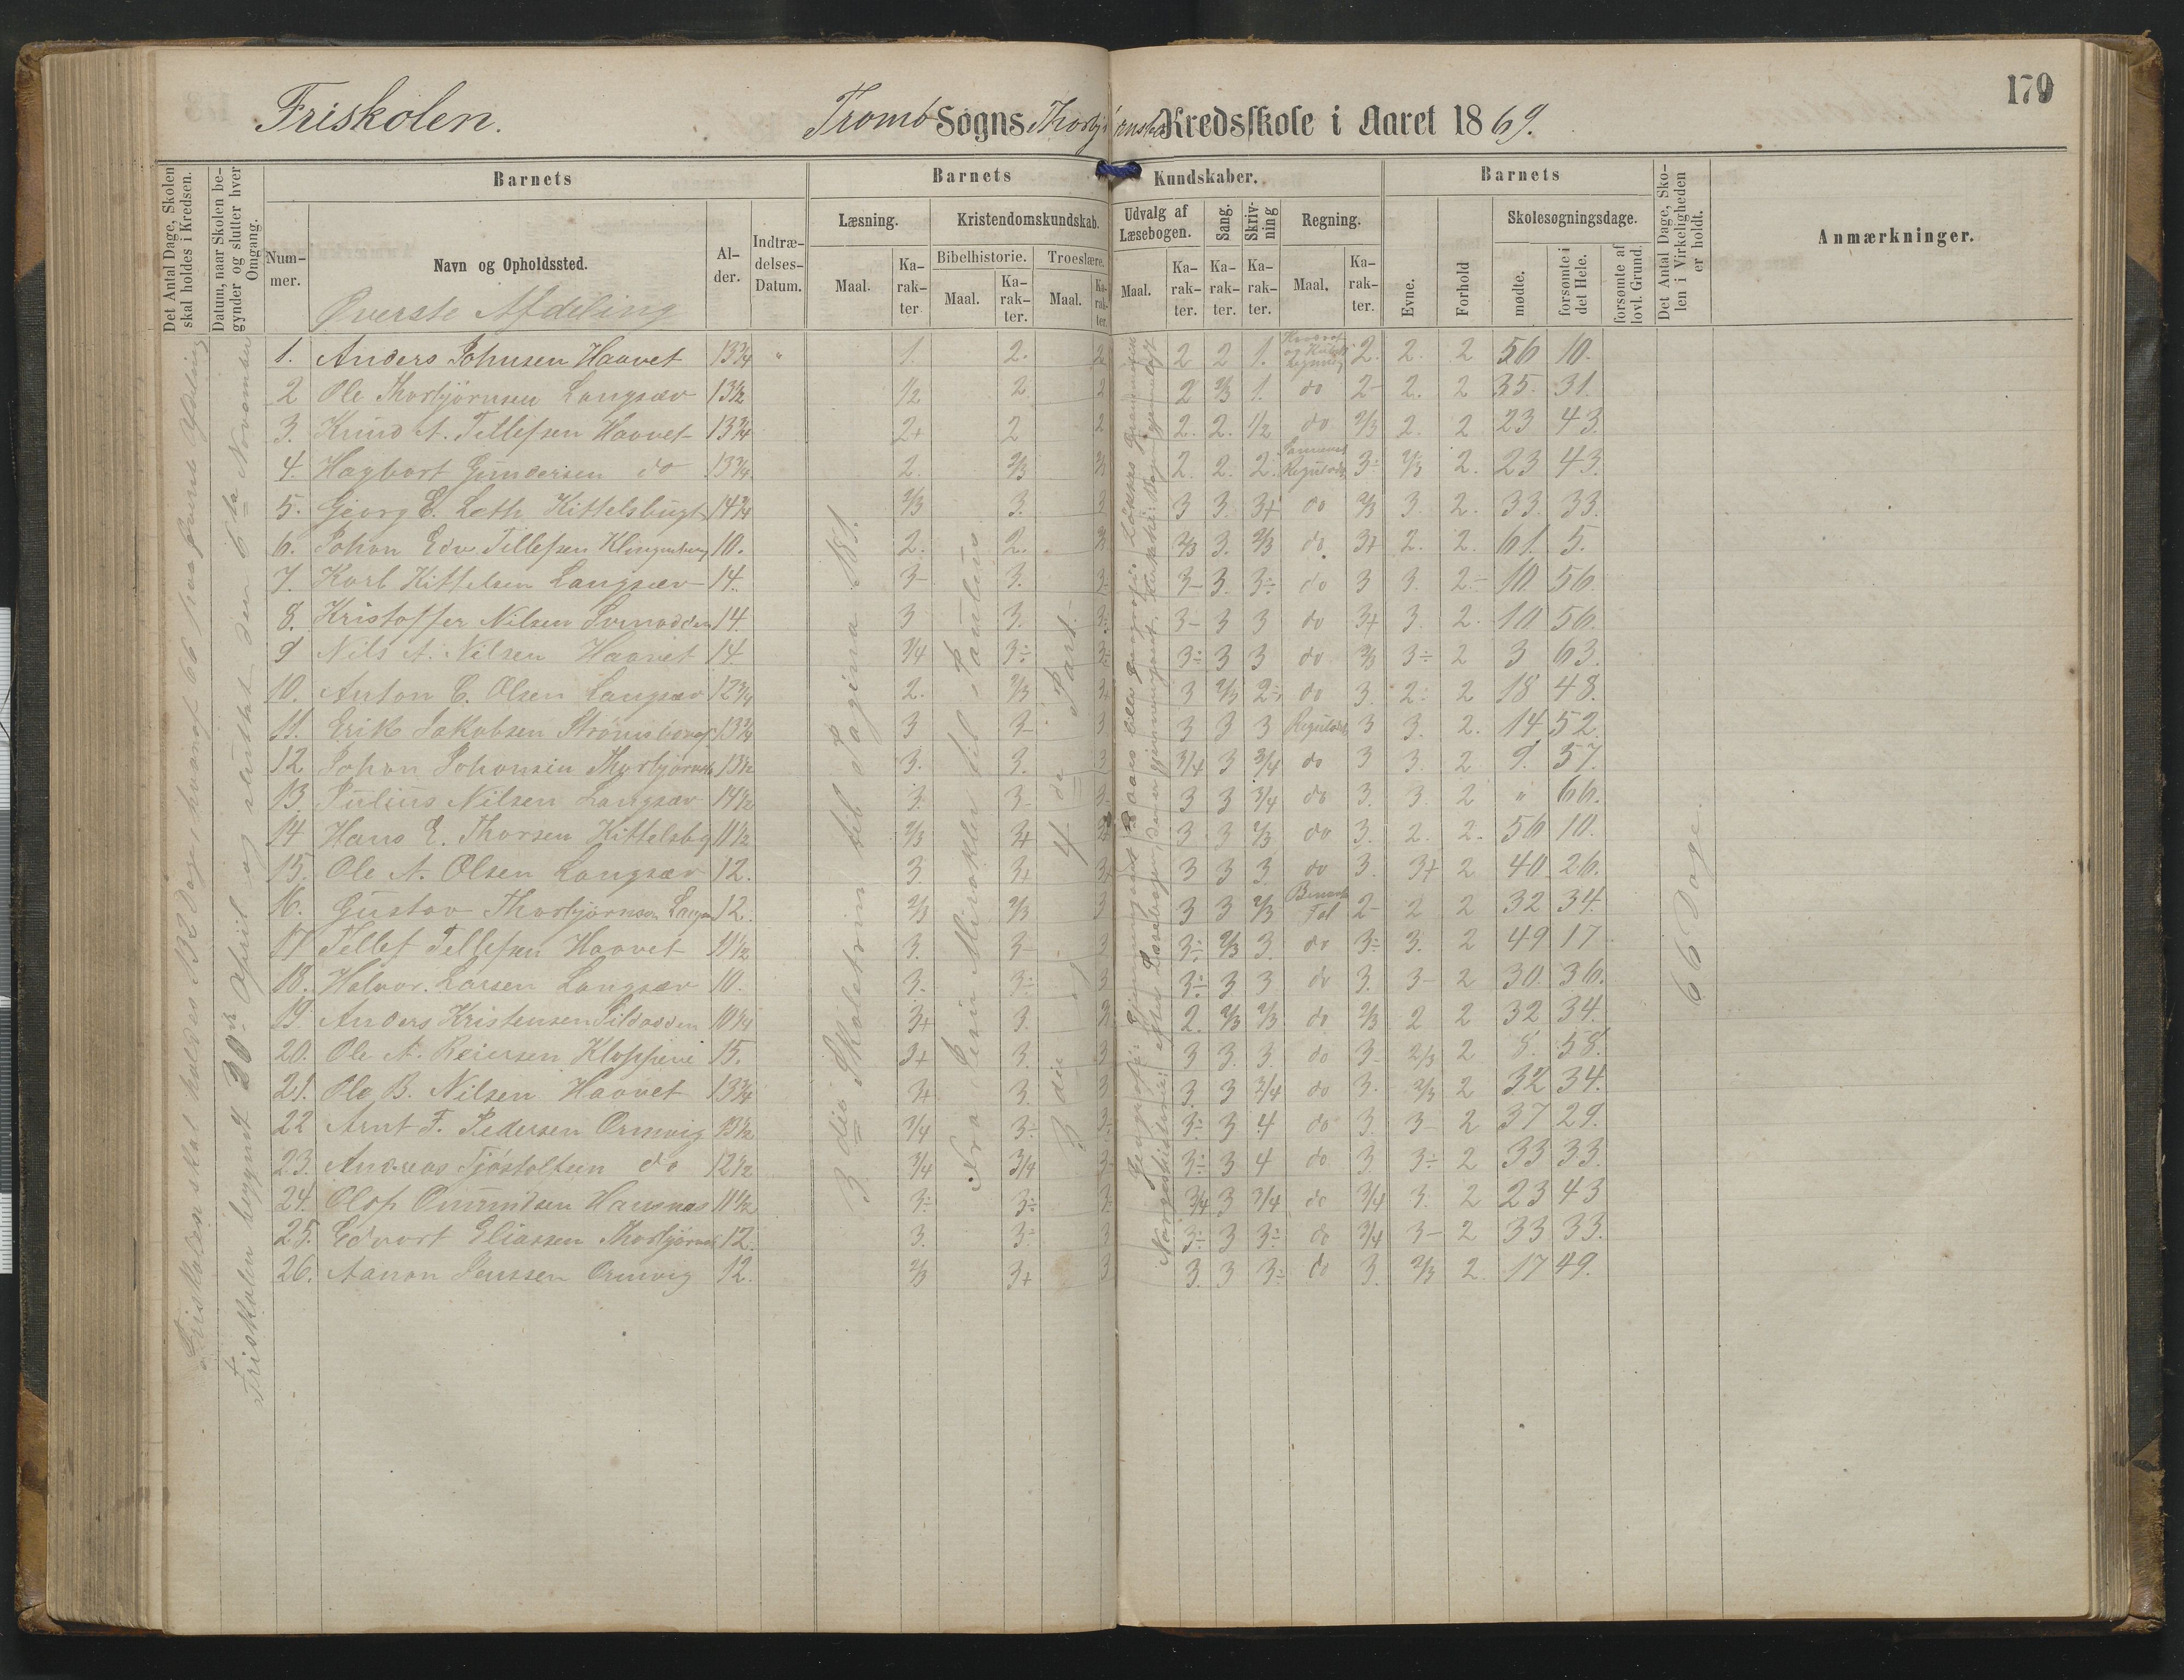 179
Friskolen. Tromö Sogns Thorbjørnsbo Kredsskole i Aaret 1869.
Det Antal Dage, Skolen skal holdes i Kredsen.
Datum, naar Skolen begynder og slutter hver Omgang.
Barnets
Nummer.
Navn og Opholdssted.
Alder.
Indtrædelses-Datum.
Barnets Kundskaber.
Læsning.
Maal.
Karakter
Kristendomskundskab.
Bibelhistorie.
Maal.
Karakter.
Troeslære.
Maal.
Karakter.
Udvalg af Læsebogen.
Maal.
Karakter.
Sang.
Karakter.
Skrivning
Karakter.
Regning.
Maal.
Karakter.
Barnets
Evne.
Forhold
Skolesøgningsdage.
mødte.
forsømte i det Hele.
forsømte af lovl. Grund.
Det Antal Dage, Skolen i Virkeligheden er holdt.
Anmærkninger.
Øverste Afdeling
1. Anders Johnsen Haavet 13 3/4 " 1. 2. 2 2 2 1. 2. 2. 2 56 10.
2 Ole Thorbjörnsen Langsæv 13 1/2 1/2 2 2 2 2/3 1. do 2- 2. 2 35. 31.
3. Knud A. Tellefsen Haavet 13 3/4 2+ 2 2 2. 2. 1/2 do 2/3 2. 2 23 43.
4. Hagbart Gundersen do 13 3/4 2. 2/3 2/3 2. 2. 2. Regulad. 3÷ 2/3 2. 23 43.
5. Georg E. Leth Kittelsbugt 14 3/4 2/3 3. 2 3 3. 3+ do 2/3 3. 2. 33. 33.
6. Johan Edv. Tellefsen Klingenberg 10. 2. 2. 2/3 3. 2/3 do. 3+ 2. 2. 61. 5.
7. Karl Kittelsen Langsæv 14. 3- 3. 3- 3. 3÷ do 3 3. 2- 10 56
8. Kristoffer Nilsen 14. 3 3. 3- 3 3 do 3+ 3. 2. 10 56.
9 Nils A. Nilsen Haavet 14 3/4 3÷ 3÷ 3÷ 3 3 do 2/3 3÷ 2 3 63.
10. Anton C. Olsen Langsæv 12 3/4 2. 2/3 3+ 3 2/3 2÷ do 3. 2÷ 2 18 48.
11. Erik Jakobsen 13 3/4 3 3- 3 3 3 3 Regulad. 3 3. 2. 14 52.
12 Johan Johansen Thorbjørnsb 13 1/2 3. 3. 3 3/4 3 3/4 do 3 3. 2 9. 57.
13. Julius Nilsen Langsæv 14 1/2 3. 3- 3- 3 3 3/4 do 3. 3. 2 " 66.
14 Hans E. Thorsen Kittelsbg 11 1/2 2/3 3+ 3 3 2/3 do 3. 2. 2. 56 10.
15. Ole A. Olsen Langsæv 12. 3. 3+ 3+ 3 3 3. do 3. 3+ 2 40 26.
16. Gustav Thorbjörnsen Langsæv 12. 2/3 2/3 3 3 3 2/3 Benævnte Tal 2- 2 2 32 34.
17 Tellef Tellefsen Haavet 11 1/2 3. 3- 3 3÷ 2/3 3. do 3÷ 3. 2 49 17
18. Halvor. Larsen Langsæv 10. 3. 3÷ 3 3÷ 3 3 do 3. 3- 2 30. 36.
19. Anders Kristensen Sildodden 10 1/4 3+ 3. 2. 2/3 2/3 do 2/3 2 2 32 34.
20. Ole A. Reiersen Kloppene 15. 3+ 3. 3 3 3. 3. do 3- 2/3 2 8. 58.
21. Ole B. Nilsen Haavet 13 3/4 3+ 3. 3 3. 3 3/4 do 3. 2/3 2 32 34.
22 Arnt F. Pedersen Ormvig 13 1/2 3/4 3÷ 3÷ 3÷ 3 4 do 3. 3- 2 37 29.
23. Andreas Tjöstolfsen do 12 1/2 3/4 3/4 3- 3÷ 3 4 do 3 3÷ 2 33 33.
24. Olaf 11 1/2 3÷ 3÷ 3÷ 3/4 3 3/4 do 3/4 3. 2 23 43
25. Edvart Eliassen Thorbjörnsb 12. 3. 3÷ 3 3÷ 3 3÷ do 3/4 3- 2 33 33.
26. Aanon Jenssen Ormvig 12. 2/3 3+ 3 3. 3 3÷ do 3. 2/3 2. 17 49.
Friskolen begynt 20de April og sluttet den 6te November
3die Skoletrin til Pagina 181.
Fra Jesu Mirakler til Paulus
3die og 4de Part.
66 Dage.